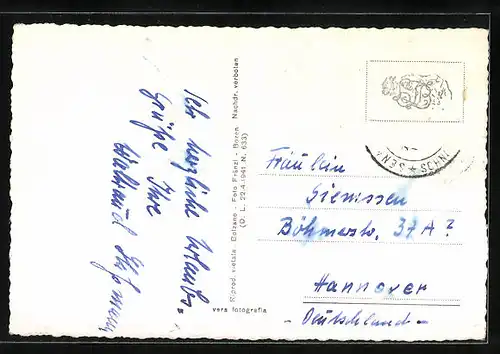 Ich herzliche Urlaubs-
Grüße Ihre
Waltraud
Riprod. vietata Bolzano - Foto Fränzl - Bozen Nachdr. verboten
(D. L. 22.4.1941 N. 633)
vera fotografia
SENALES ★ SCHN
Fräulein
Siemssen
Böhmerstr. 37A?
Hannover
- Deutschland -